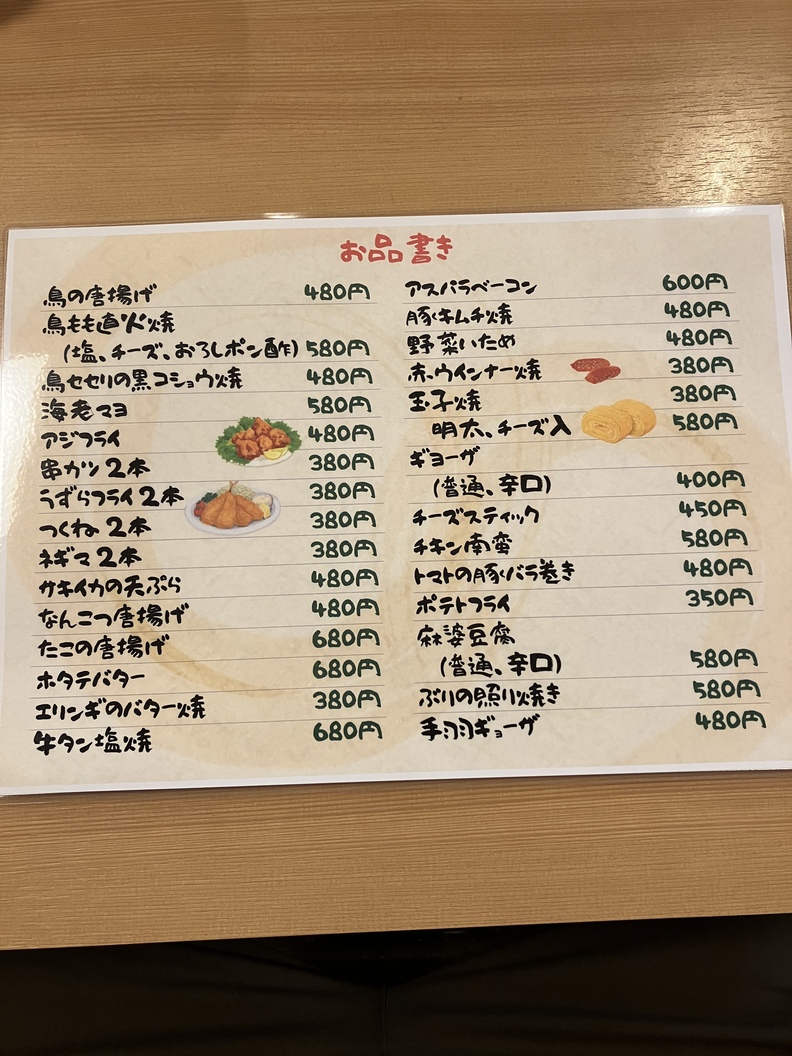 お品書き
鳥の唐揚げ 480円
鳥もも直火焼
(塩、チーズ、おろしポン酢) 580円
鳥セセリの黒コショウ焼 480円
海老マヨ 580円
アジフライ 480円
串カツ2本 380円
うずらフライ2本 380円
つくね2本 380円
ネギマ2本 380円
サキイカの天ぷら 480円
なんこつ唐揚げ 480円
たこの唐揚げ 680円
ホタテバター 680円
エリンギのバター焼 380円
牛タン塩焼 680円
アスパラベーコン 600円
豚キムチ焼 480円
野菜いため 480円
赤ウインナー焼 380円
玉子焼 380円
明太、チーズ入 580円
ギョーザ
(普通、辛口) 400円
チーズスティック 450円
チキン南蛮 580円
トマトの豚バラ巻き 480円
ポテトフライ 350円
麻婆豆腐
(普通、辛口) 580円
ぶりの照り焼き 580円
手羽ギョーザ 480円